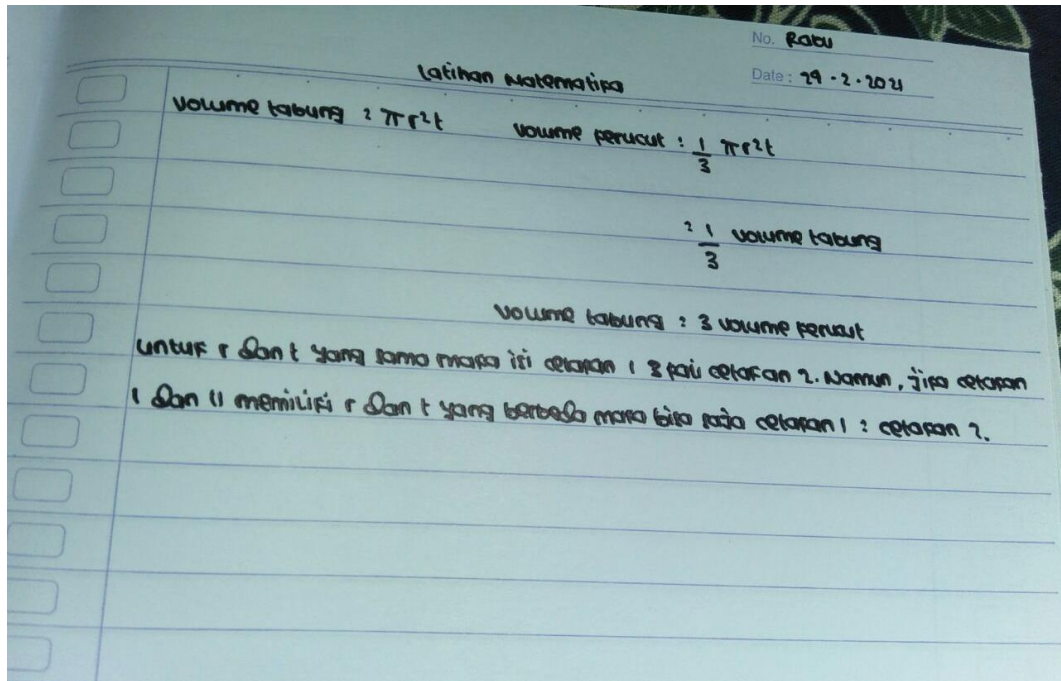 No. Rabu
Latihan Matematika
Date : 29 - 2 - 2021
Volume tabung = πr²t Volume kerucut : 1/3 πr²t
= 1/3 volume tabung
Volume tabung = 3 volume kerucut
Untuk r dan t yang sama maka isi cetakan 1 3 kali cetakan 2. Namun, jika cetakan
1 dan 11 memiliki r dan t yang berbeda maka bisa saja cetakan 1 = cetakan 2.